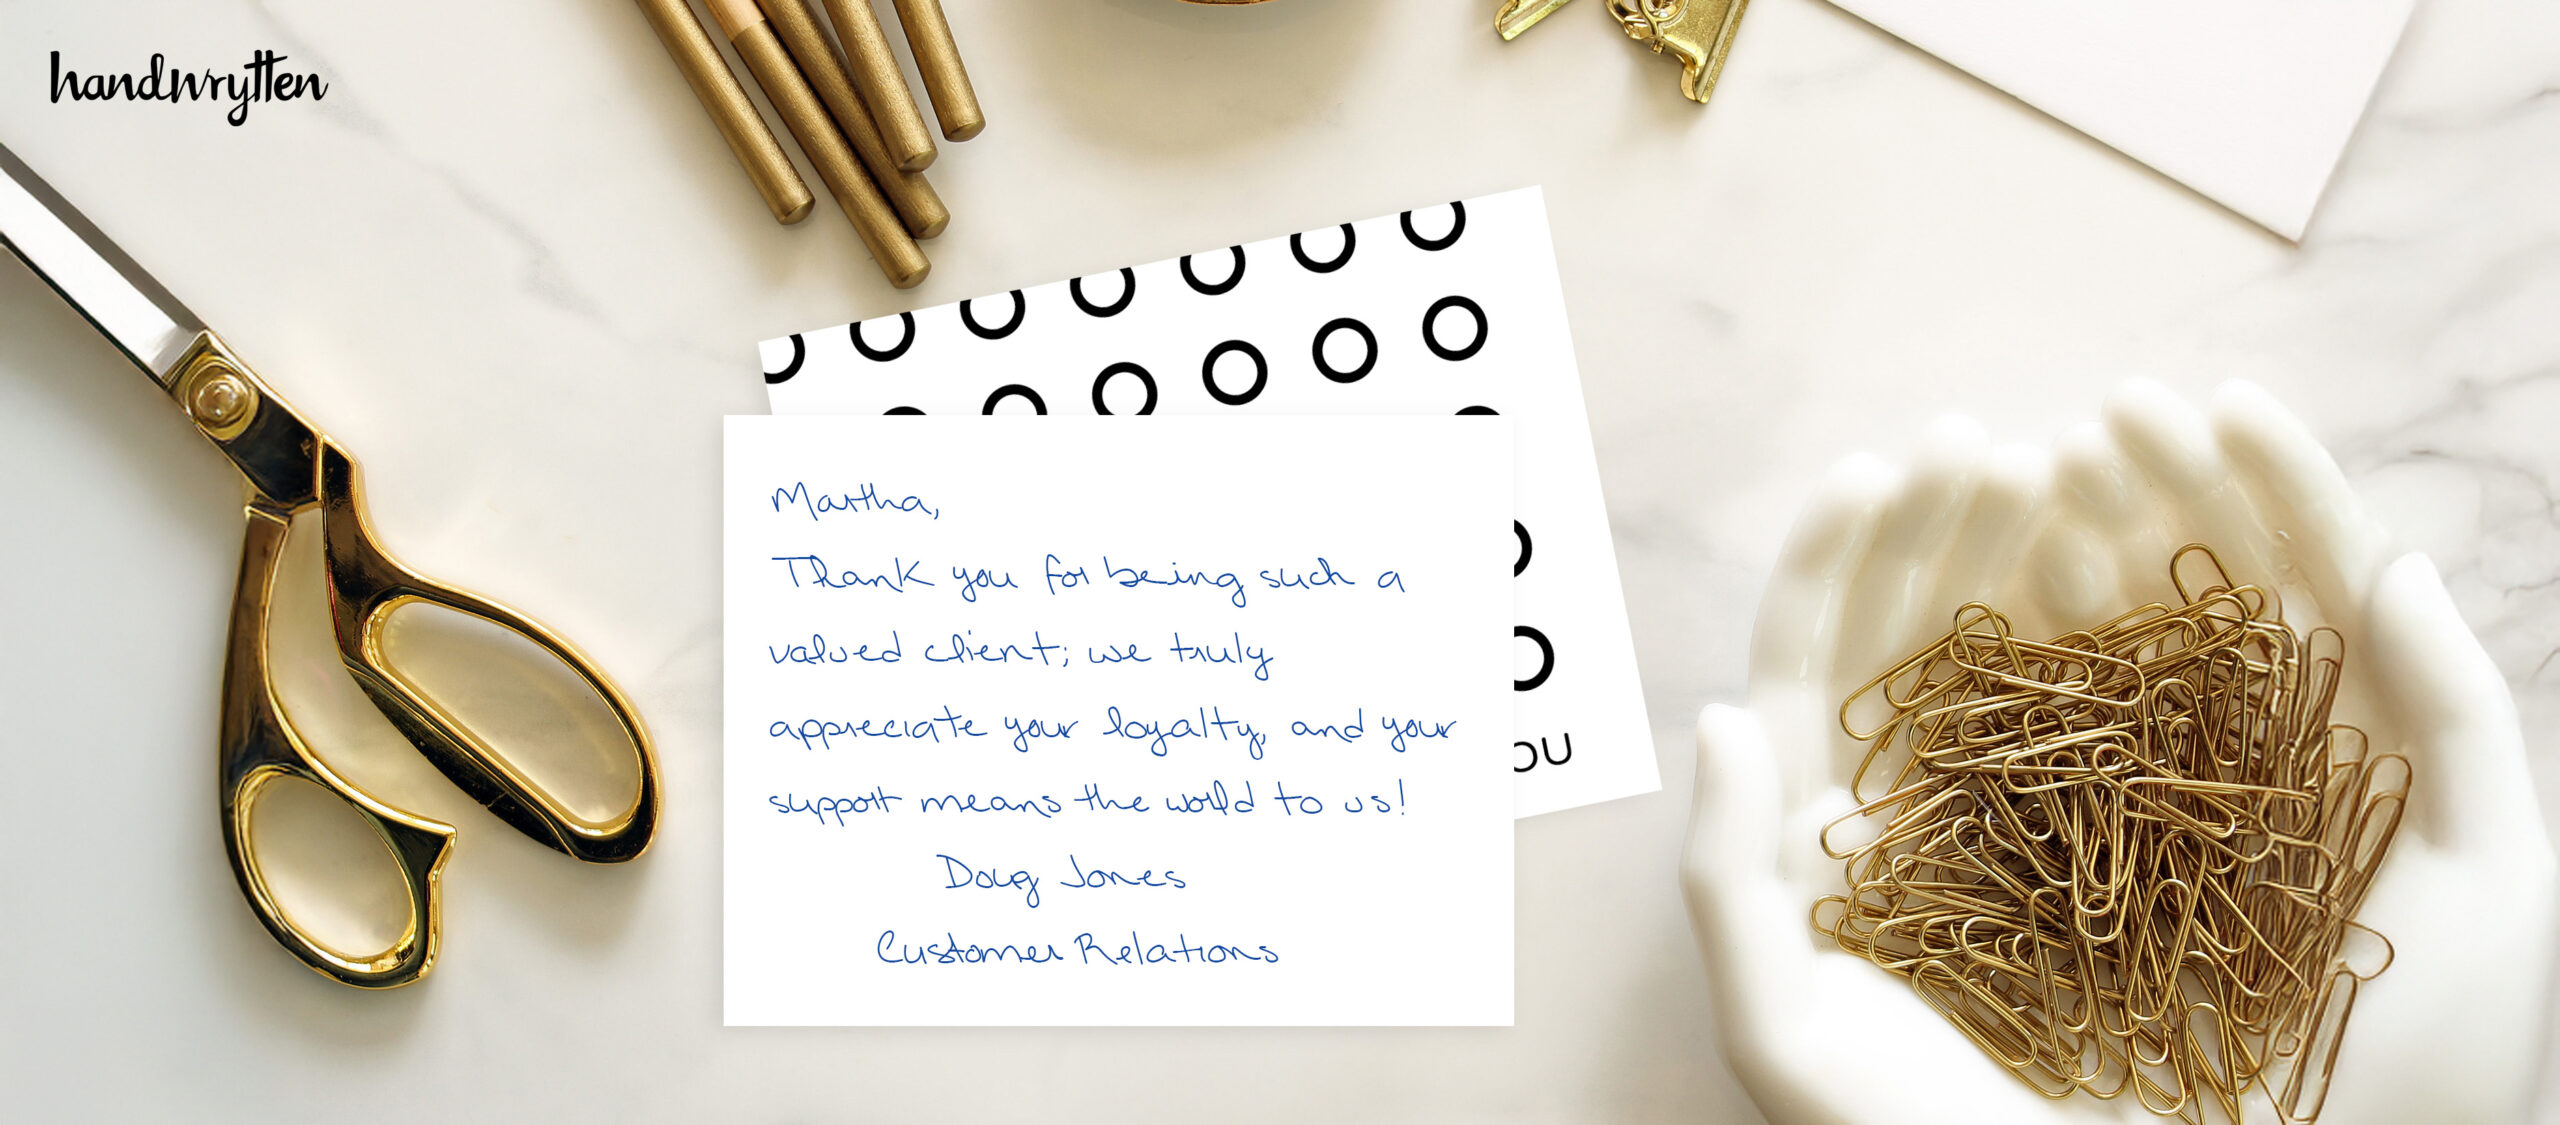 handwrytten
Martha,
Thank you for being such a
valued client; we truly
appreciate your loyalty, and your
support means the world to us!
Doug Jones
Customer Relations
OU